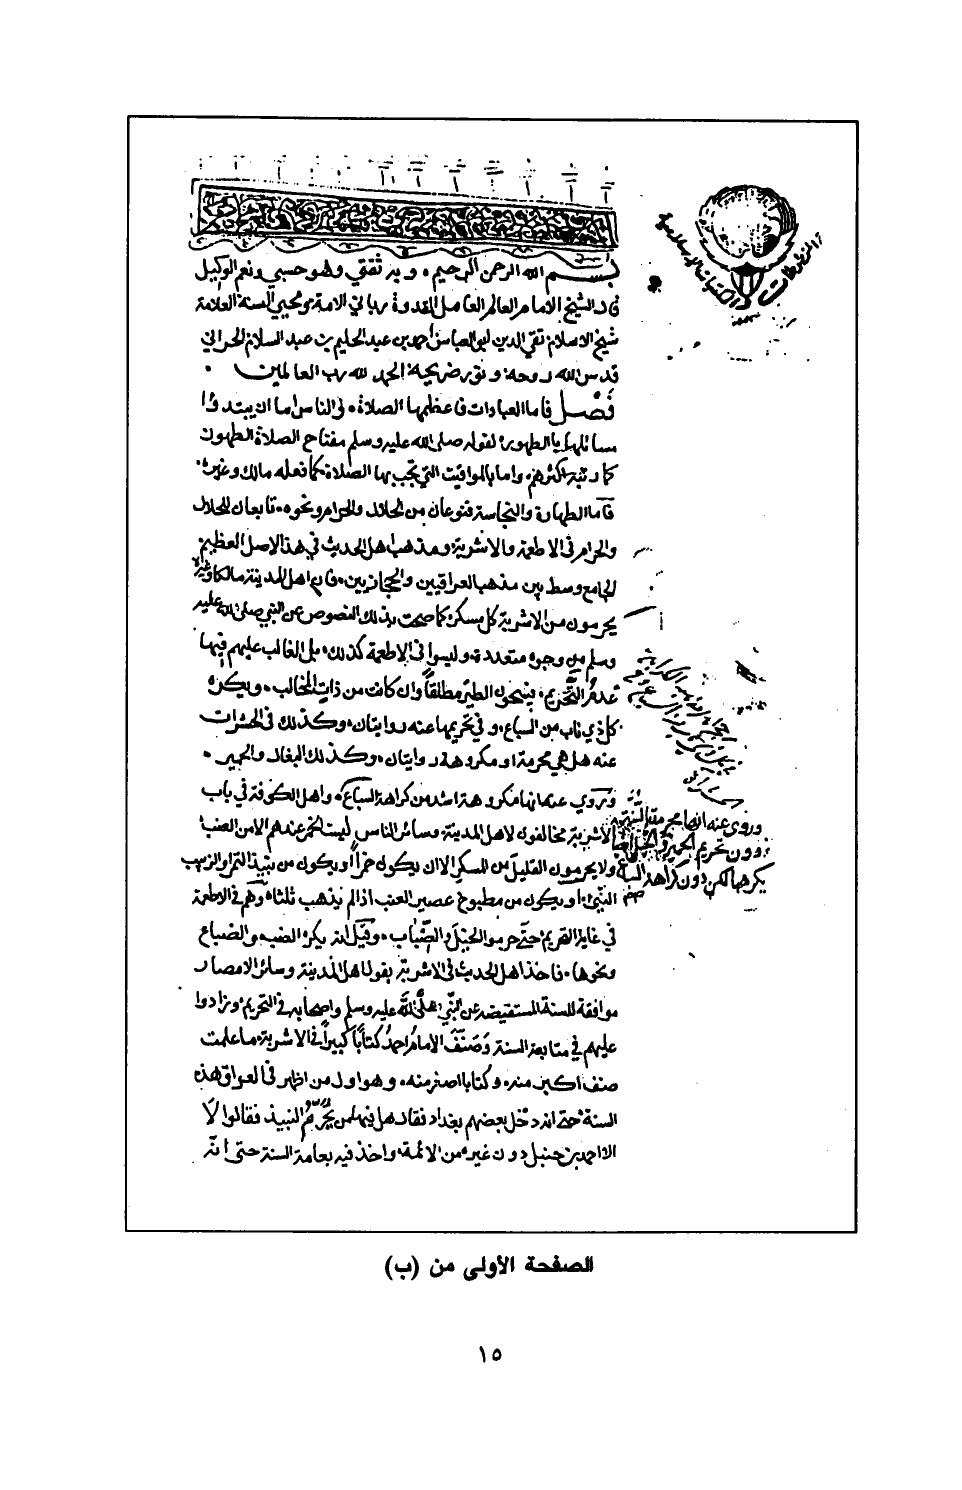 بسم الله الرحمن الرحيم وبه ثقتي وهو حسبي ونعم الوكيل
قال الشيخ الامام العالم العامل القدوة رباني الامة ومحيي السنة العلامة
شيخ الاسلام تقي الدين ابو العباس احمد بن عبد الحليم بن عبد السلام الحراني
قدس الله روحه ونور ضريحه الحمد لله رب العالمين
فصل فاما العبادات فاعظمها الصلاة والناس اما ان يبتدؤا
مسائلها بالطهور لقوله صلى الله عليه وسلم مفتاح الصلاة الطهور
كما رتبه اكثرهم واما بالمواقيت التي تجب بها الصلاة كما فعله مالك وغيره
فاما الطهارة والنجاسة فنوعان من الحلال والحرام ونحوه تابعان للحلال
والحرام في الاطعمة والاشربة ومذهب اهل الحديث في هذا الاصل العظيم
الجامع وسط بين مذهب العراقيين والحجازيين فان اهل المدينة مالكا وغيره
يحرمون من الاشربة كل مسكر كما صحت بذلك النصوص عن النبي صلى الله عليه
وسلم من وجوه متعددة وليسوا في الاطعمة كذلك بل الغالب عليهم فيها
عدم التحريم فيبيحون الطير مطلقا وان كانت من ذات المخالب ويكره
كل ذي ناب من السباع وفي تحريمها عنه روايتان وكذلك في الحشرات
عنه هل هي محرمة او مكروهة روايتان وكذلك البغال والحمير
وروي عنه انها مكروهة اشد من كراهة السباع واهل الكوفة في باب
الاشربة مخالفون لاهل المدينة وسائر الناس ليست الخمر عندهم الا من العنب
ولا يحرمون القليل من المسكر الا ان يكون خمرا او يكون من نبيذ التمر والزبيب
النيئ او يكون من مطبوخ عصير العنب اذا لم يذهب ثلثاه وهم في الاطعمة
في غاية التحريم حتى حرموا الخيل والضباب وقيل انه يكره الضب والضباع
ونحوها فاخذ اهل الحديث في الاشربة بقول اهل المدينة وسائر الامصار
موافقة للسنة المستفيضة عن النبي صلى الله عليه وسلم واصحابه في التحريم وزادوا
عليهم في متابعة السنة وصنف الامام احمد كتابا كبيرا في الاشربة ما علمت
صنف اكبر منه وكتابا اصغر منه وهو اول من اظهر في العراق هذه
السنة حتى انه دخل بعضهم بغداد فقال هل فيها من يحرم النبيذ فقالوا لا
الا احمد بن حنبل دون غيره من الائمة واخذ فيه بعامة السنة حتى انه
وروي عنه انها محرمة بالسنة
دون تحريم الحمير
صح
الصفحة الأولى من (ب)
١٥